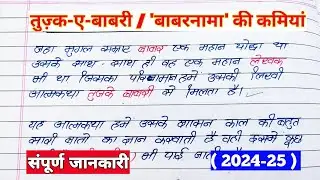 तुज़्क-ए-बाबरी / 'बाबरनामा' की कमियां
जहां मुगल सम्राट बाबर एक महान योद्धा था
उसके साथ-साथ ही वह एक महान लेखक
भी था जिसका हमें उसकी लिखी
आत्मकथा तुजके बाबरी से मिलता है।
यह आत्मकथा हमें उसके शासन काल की बहुत
सारी बातों का ज्ञान करवाती है वहीं इसमें कुछ
भी पाई
संपूर्ण जानकारी
( 2024-25 )